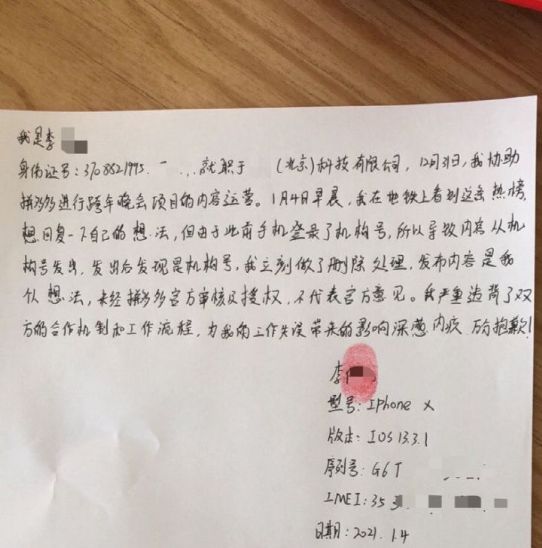 我是李
身份证号:3708521995. 就职于 (北京)科技有限公司,12月31日,我协助
拼多多进行跨年晚会项目的内容运营。1月4日早晨,我在地铁上看到这条热榜,
想回复一下自己的想法,但由于此前手机登录了机构号,所以导致内容从机
构号发出,发出后发现是机构号,我立刻做了删除处理,发布内容是我
个人想法,未经拼多多官方审核及授权,不代表官方意见。我严重违背了双
方的合作机制和工作流程,为我的工作失误带来的影响深感内疚 和抱歉!
李
型号:IPhone X
版本:IOS 13.3.1
序列号:G6T
IMEI:35 3
日期:2021.1.4